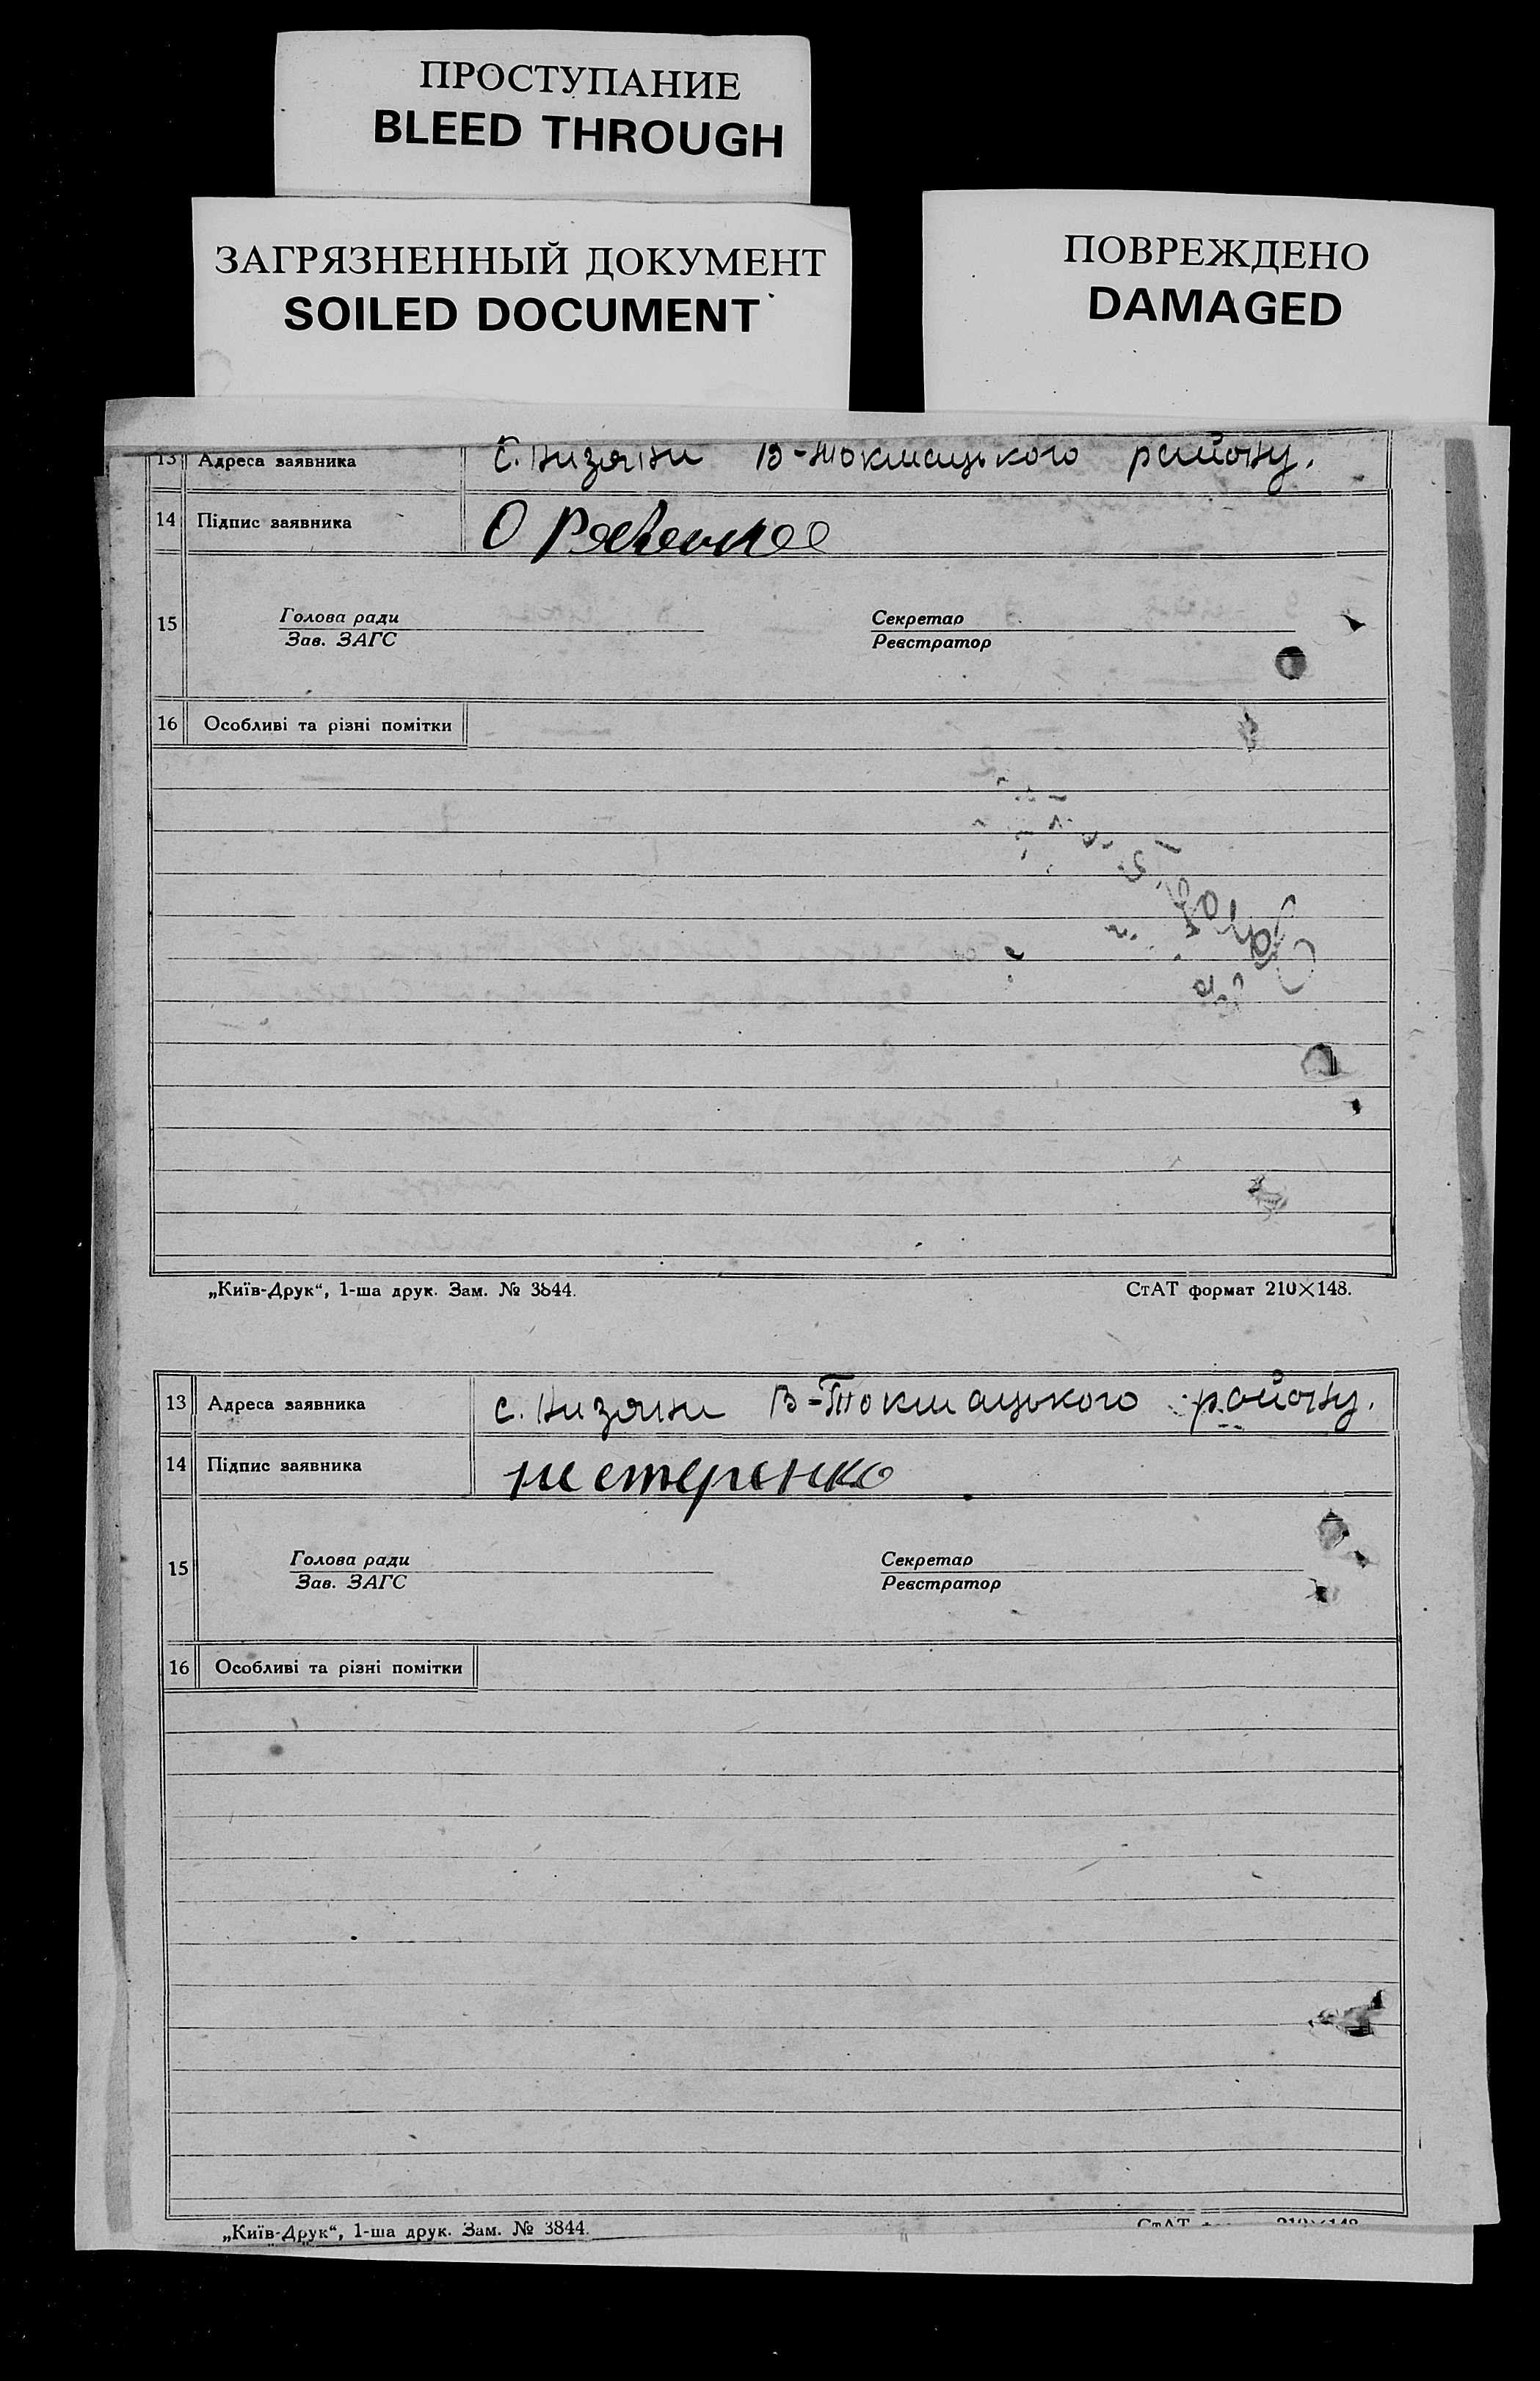 ПРОСТУПАНИЕ
BLEED THROUGH
ЗАГРЯЗНЕННЫЙ ДОКУМЕНТ
SOILED DOCUMENT
ПОВРЕЖДЕНО
DAMAGED
13 Адреса заявника с. Низяни В-Токмацького району.
14 Підпис заявника О
15 Голова ради Секретар
Зав. ЗАГС Реєстратор
16 Особливі та різні помітки
„Київ-Друк“, 1-ша друк. Зам. № 3844. СтАТ формат 210×148.
13 Адреса заявника с. Низяни В-Токмацького району.
14 Підпис заявника нестеренко
15 Голова ради Секретар
Зав. ЗАГС Реєстратор
16 Особливі та різні помітки
„Київ-Друк“, 1-ша друк. Зам. № 3844. СтАТ